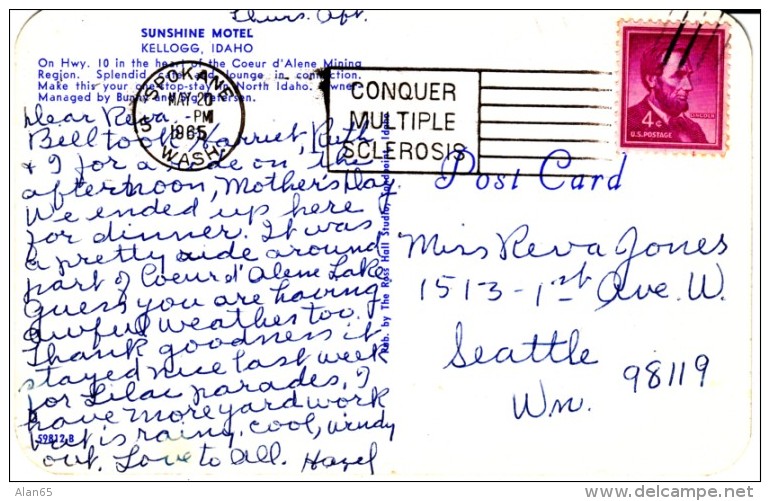 Thurs. Aft.
SUNSHINE MOTEL
KELLOGG, IDAHO
On Hwy. 10 in the heart of the Coeur d'Alene Mining
Region. Splendid cafe and lounge in connection.
Make this your one-stop-stay in North Idaho. Owned
Managed by Bunny and Sig Petersen.
Dear Reva.
Bell took Harriet, Ruth
& I for a ride on the
afternoon, Mother's Day.
We ended up here
for dinner. It was
a pretty ride around
part of Coeur d'Alene Lake
Guess you are having
awful weather too.
Thank goodness it
stayed nice last week
for Lilac parades, I
have more yard work
but is rainy, cool, windy
out. Love to All. Hazel
59812-B
Rab. by The Ross Hall Studio, Sandpoint, Idaho
SPOKANE
MAY 20
-PM
1965
WASH.
CONQUER
MULTIPLE
SCLEROSIS
LINCOLN
4c
U.S. POSTAGE
Post Card
Miss Reva Jones
1513-1st Ave. W.
Seattle
Wn. 98119
Alan65
delcampe.net